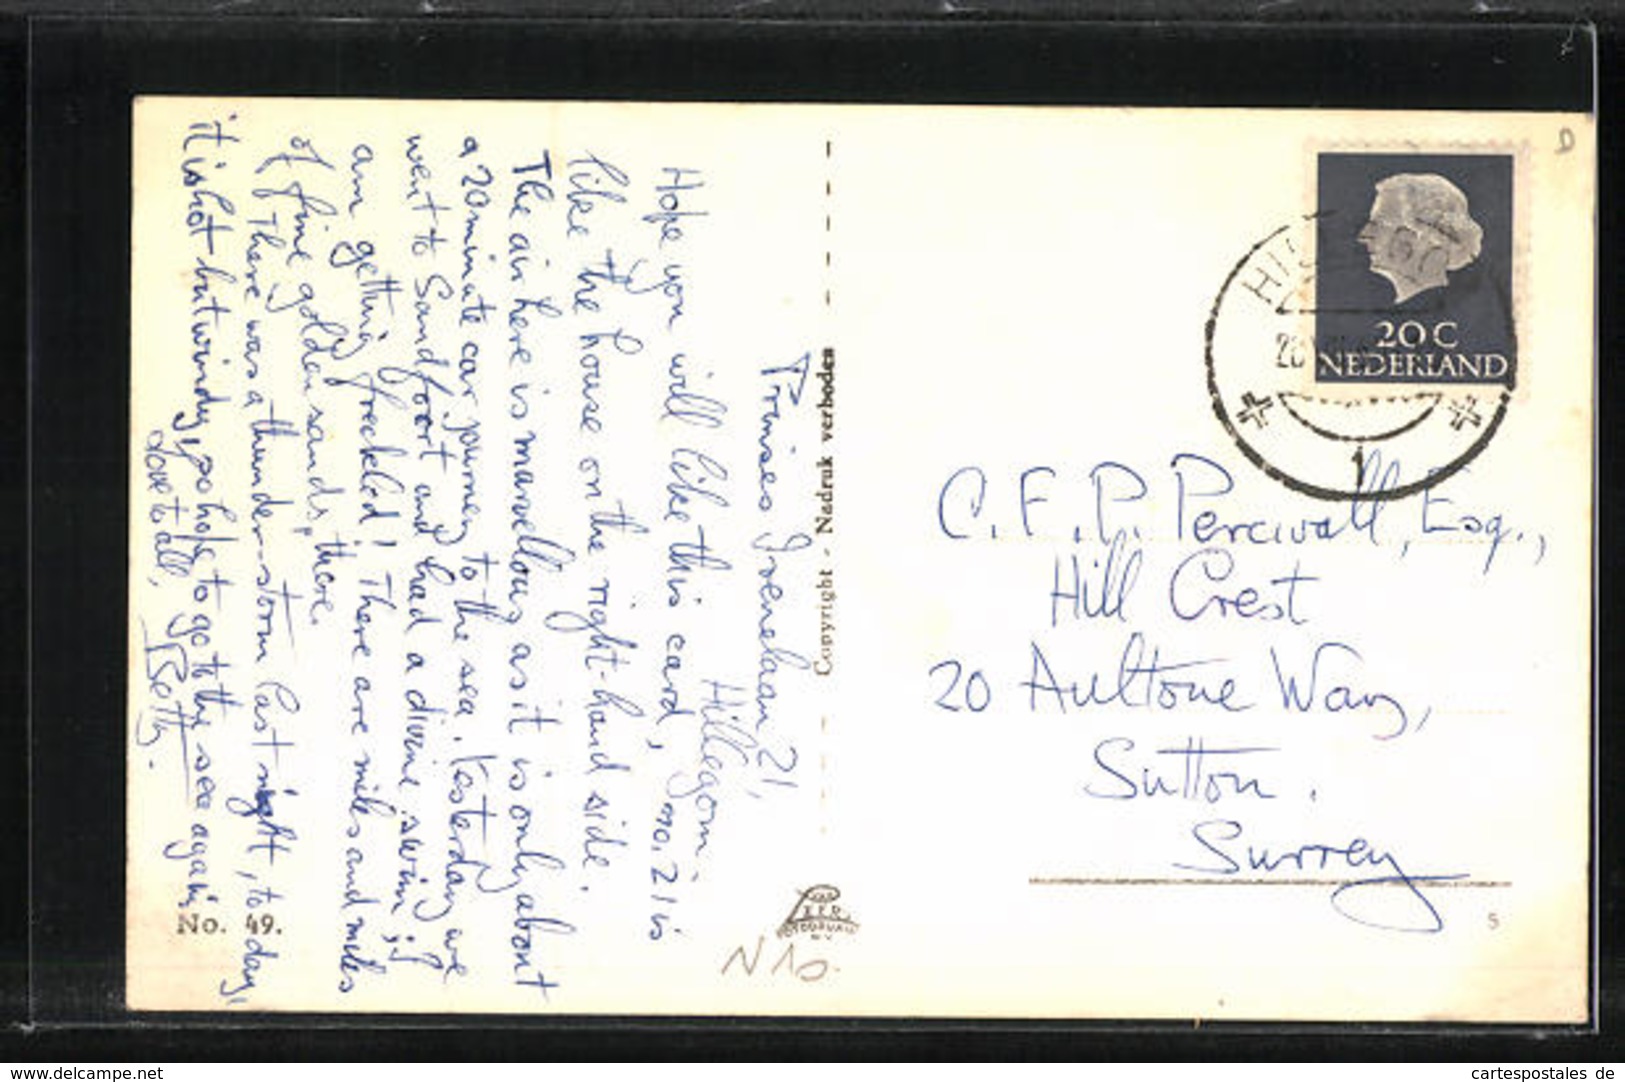 Prinses Irenelaan 21,
Hillegom.
Hope you will like this card, no. 21 is
like the house on the right-hand side.
The air here is marvellous as it is only about
a 20 minute car journey to the sea. Yesterday we
went to Sandfoort and had a divine swim; I
am getting freckled! There are miles and miles
of fine golden sands, there.
There was a thunder-storm last night, to day,
it is hot but windy, so hope to go to the sea again.
Love to all,
Betty.
No. 49.
Copyright - Nadruk verboden
N10.
20 C
NEDERLAND
1
C. F. P. Percivall, Esq.,
Hill Crest
20 Aultone Way,
Sutton.
Surrey
S
www.delcampe.net
cartespostales_de